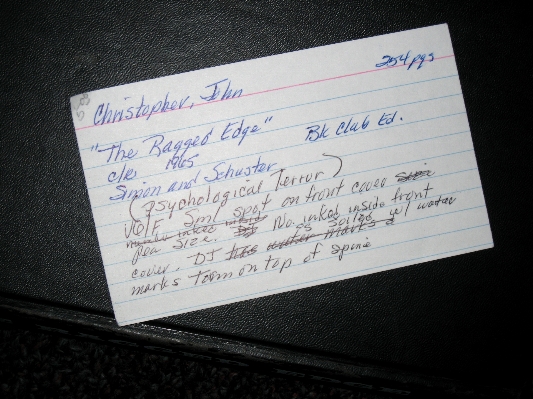 254 pgs
Christopher, John
"The Ragged Edge" Bk Club Ed.
c/w 1965
Simon and Schuster
(psychological Terror)
VG/F Sml spot on front cover
Pea size. No. inked inside front
cover. DJ is soiled w/ water
marks torn on top of spine